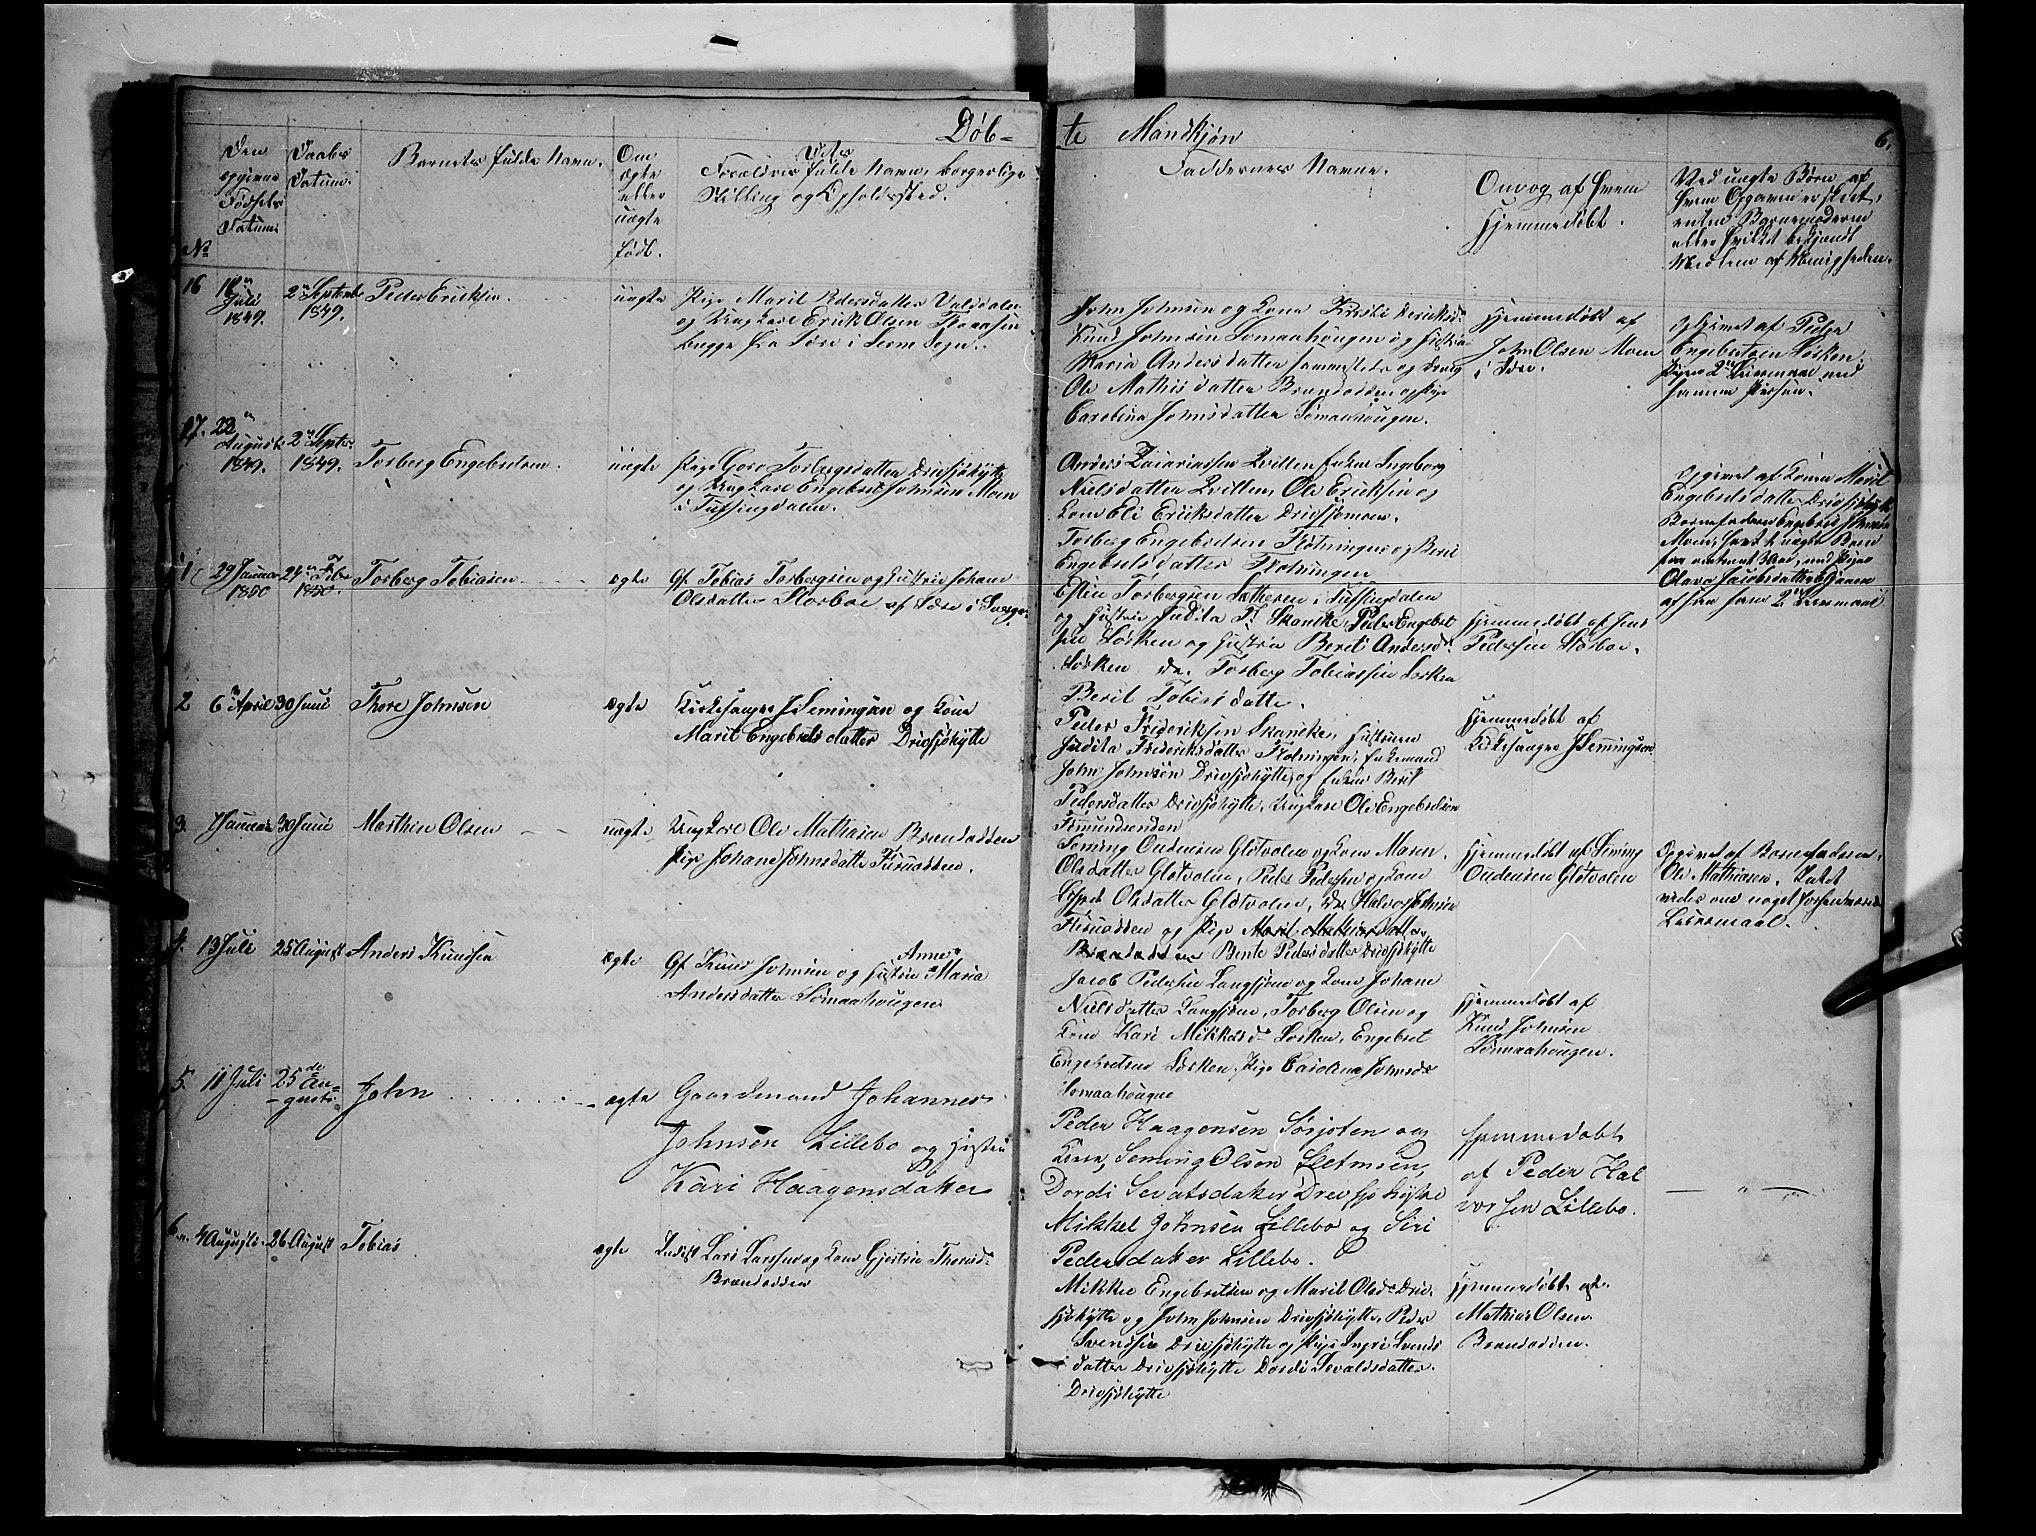 Døb=
te Mandkjøn
6.
No
Den
opgivne
Fødsels
Datum
Daabs
Datum
Barnets fulde Navn.
Om
ægte
eller
uægte
født.
Forældres fulde Navn, borgerlige
Stilling og Opholdssted.
Faddernes Navne.
Om og af hvem
hjemmedøbt.
Ved uægte Børn af
hvem Opgaven er skeet,
enten Barnemoderen
eller hvilket bekjendt
Medlem af Menigheden.
16
Juli
1849.
2n Septembr
1849.
Peder Eriksen
uægte
Pige Marit Pedersdatter
og Ungkarl Erik Olsen
begge fra Sære i Serne Sogn.
John Johnsen og Kone Kirsti Eriksd.
Knud Johnsen Sømaahougen og Hustru
Maria Andersdatter sammesteds og Dreng
Ole Mathisdatter Brændodden og Pige
Carolina Johnsdatter Sømaahougen.
Hjemmedøbt af
John Olsen Moen
i Sære.
Opgivet af Peder
Engebretsen Sorken.
Pigens 2n Leiermaal med
samme Person.
17.
22n
August
1849.
2n Septbr
1849.
Torberg Engebretsen
uægte
Pige Goro Torbergsdatter Drevsjøhytte
og Ungkarl Engebret Johnsen Moen
i Tufsingdalen.
Anders Zacariassen Kvilten Enken Ingeborg
Nielsdatter Kvilten, Ole Ericksen og
Kone Eli Ericksdatter Drevsjømoen,
Torberg Engebretsen Fløtningen og Berit
Engebretsdatter Fløtningen
Opgivet af Konen Marit
Engebretsdatter Drevsjøhytte
Barnefaderen Engebret Johnsen
Moen, havt 1 uægte Barn
for omtrent 3 Aar, med Pigen
Olava Jacobsdatter
af saa hans 2det Leiermaal
1
29 Januar
1850
24n Febr
1850.
Torberg Tobiasen
ægte
Gf Tobias Torbergsen og Hustru Johane
Olsdatter Storboe af Sære i Sverge.
Esten Torbergsen Sætheren i Tufsingdalen
og Hustru Judita F. Skancke, Peder Engebret
sen Sorken og Hustru Berit Andersd.
Sorken Dr. Torberg Tobiassen Sorken
Berit Tobiasdatter.
Hjemmedøbt af Jens
Pedersen Storboe.
2
6 April
30 Juni
Thore Johnsen
ægte
Kirkesanger J Semingsen og Kone
Marit Engebretsdatter Drevsjøhytte
Peder Frideriksen Skancke, Hustruen
Judita Frederiksdatter Fløtningen, Enkemand
John Johnsen Drevsjøhytte, og Enken Berit
Pedersdatter Drevsjøhytte, Ungkarl Ole Engebretsen
Femundsenden
Hjemmedøbt af
Kirkesanger J Semingsen
3.
Januar
30 Juni
Morthen Olsen
uægte
Ungkarl Ole Mathisen Brændodden
Pige Johane Johnsdatter Furuodden.
Seming Oudensen Gløtvolen og Kone Maren
Olsdatter Gløtvolen, Peder Pedersen og Kone
Lisbet Olsdatter Gløtvolen, Dr. Halvor Johnsen
Furuodden og Pige Marit Mathisdatter
Brændodden Bente Pedersdatter Drevsjøhytte
Hjemmedøbt af Seming
Oudensen Gløtvolen
Opgivet af Barnefaderen
Ole Mathiasen. Intet
vides om noget forhenværende
Leiermaal.
4.
13 Juli
25 August
Anders Knudsen
ægte
Gf Knud Johnsen og Hustru Anne Maria
Andersdatter Sømaahougen
Jacob Pedersen Langsjøen og Kone Johane
Nielsdatter Langsjøen, Torberg Olsen og
Kone Kari Mikkelsd. Sorken, Engebret
Engebretsen Sorken, Pige Carolina Johnsd.
Sømaahougen
Hjemmedøbt af
Knud Johnsen
Sømaahougen.
5.
11 Juli
25de Au=
gust
John
ægte
Gaardmand Johannes
Johnsen Lillebo og Hustru
Kari Haagensdatter
Peder Haagensen Sorjoten og
Kone, Seming Olsen
Dordi Sevatsdatter Drevsjøhytte
Mikkel Johnsen Lillebo og Siri
Pedersdatter Lillebo.
Hjemmedøbt
af Peder Hal
vorsen Lillebo.
— " —
6.
4 August
26 August
Tobias
ægte
Inderst Lars Larsen og Kone Gjertru Thorsd.
Brændodden
Mikkel Engebretsen og Marit Olsd. Drev
sjøhytte og John Johnsen Drevsjøhytte, Peder
Svendsen Drevsjøhytte og Pige Ingri Svends
datter Drevsjøhytte Dordi Sevaldsdatter
Drevsjøhytte
Hjemmedøbt af
Mathias Olsen
Brændodden.